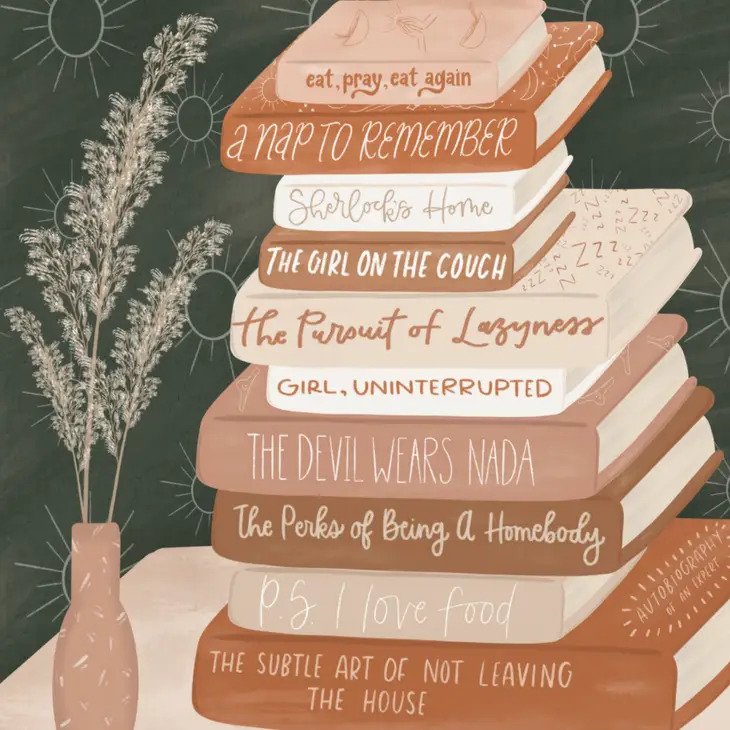 eat, pray, eat again
a NaP TO REMEMBER
Sherlock's Home
THE GIRL ON THE COUCH
ZZZ
ZZZ
ZZZ
the Pursuit of Lazyness
GIRL, UNINTERRUPTED
THE DEVIL WEARS NADA
The Perks of Being A Homebody
P.S. I love food
AUTOBIOGRAPHY
OF AN EXPERT
THE SUBTLE ART OF NOT LEAVING
THE HOUSE